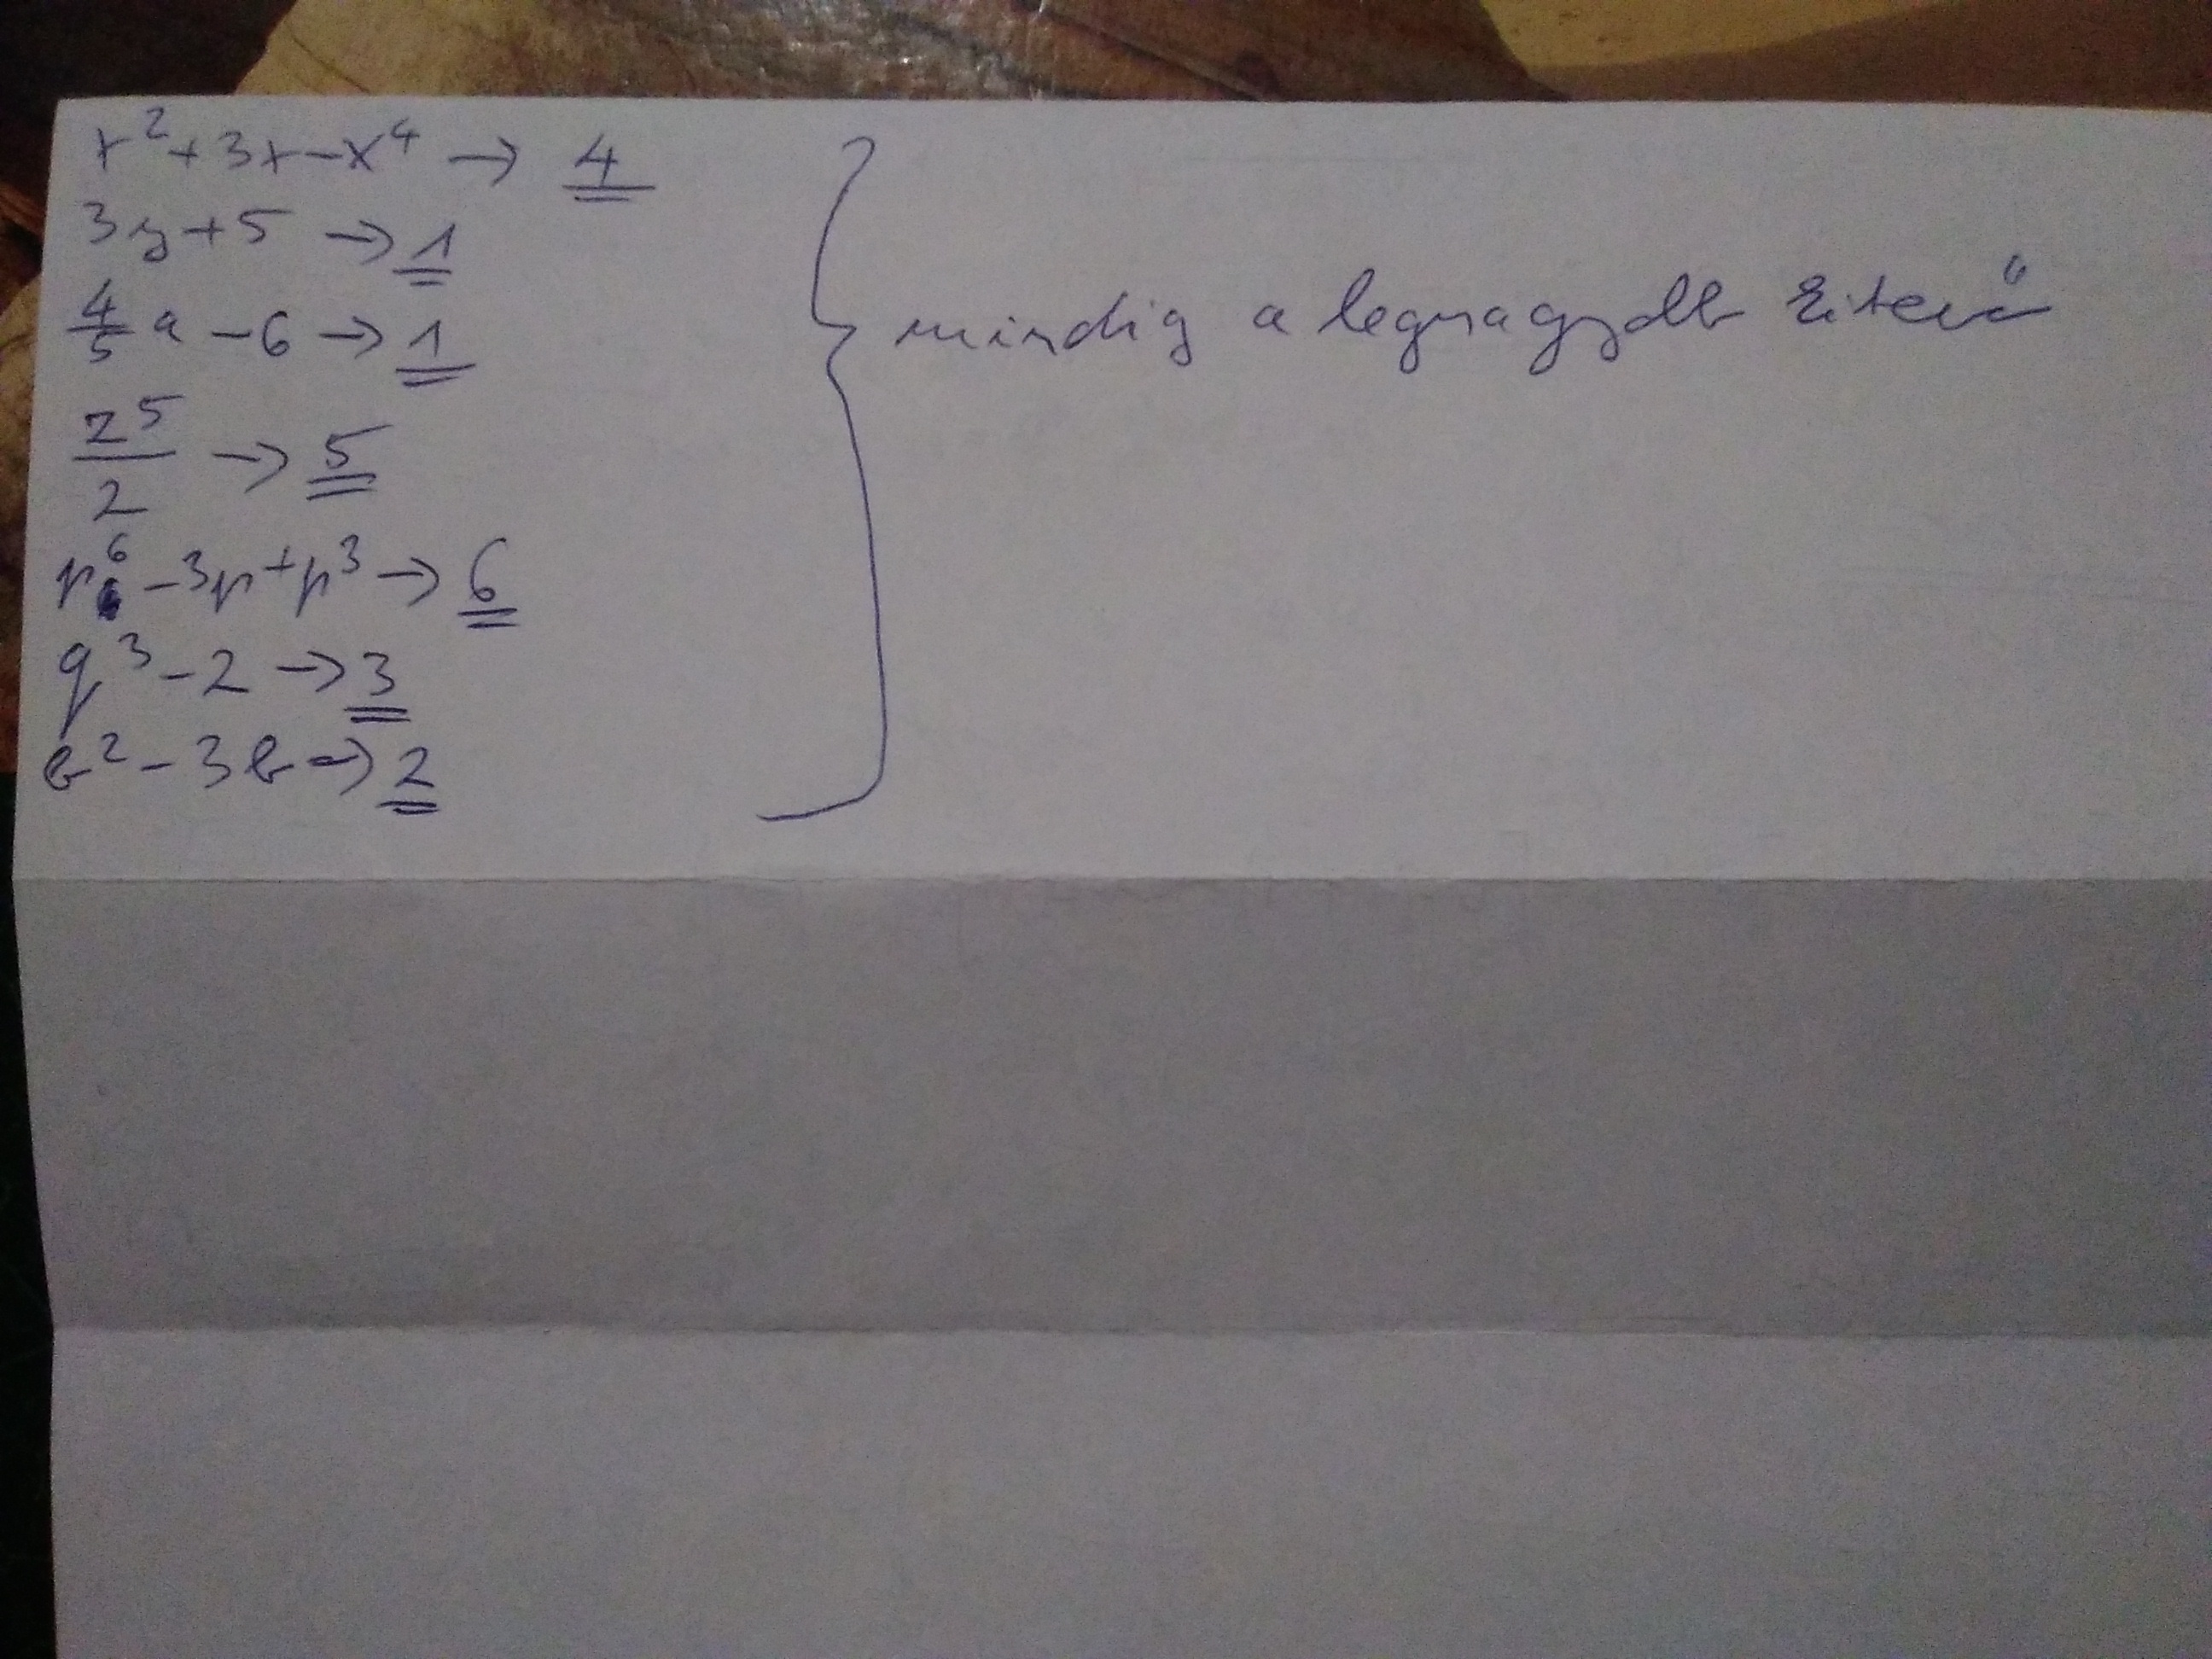 x² + 3x - x⁴ → 4
3y + 5 → 1
4/5 a - 6 → 1
z⁵/2 → 5
p⁶ - 3p + p³ → 6
q³ - 2 → 3
b² - 3b → 2
} mindig a legnagyobb kitevő